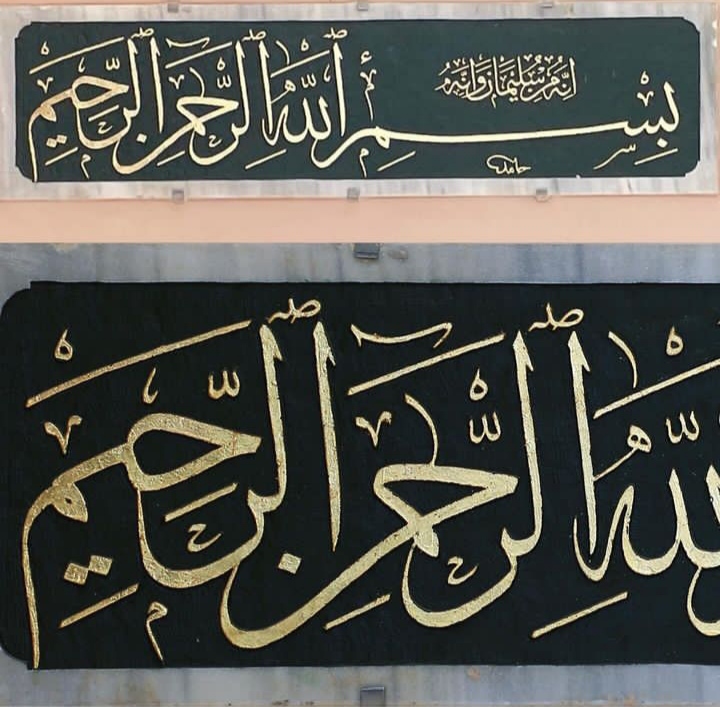 إنه من سليمان وإنه
بسم الله الرحمن الرحيم
حامد
الله الرحمن الرحيم